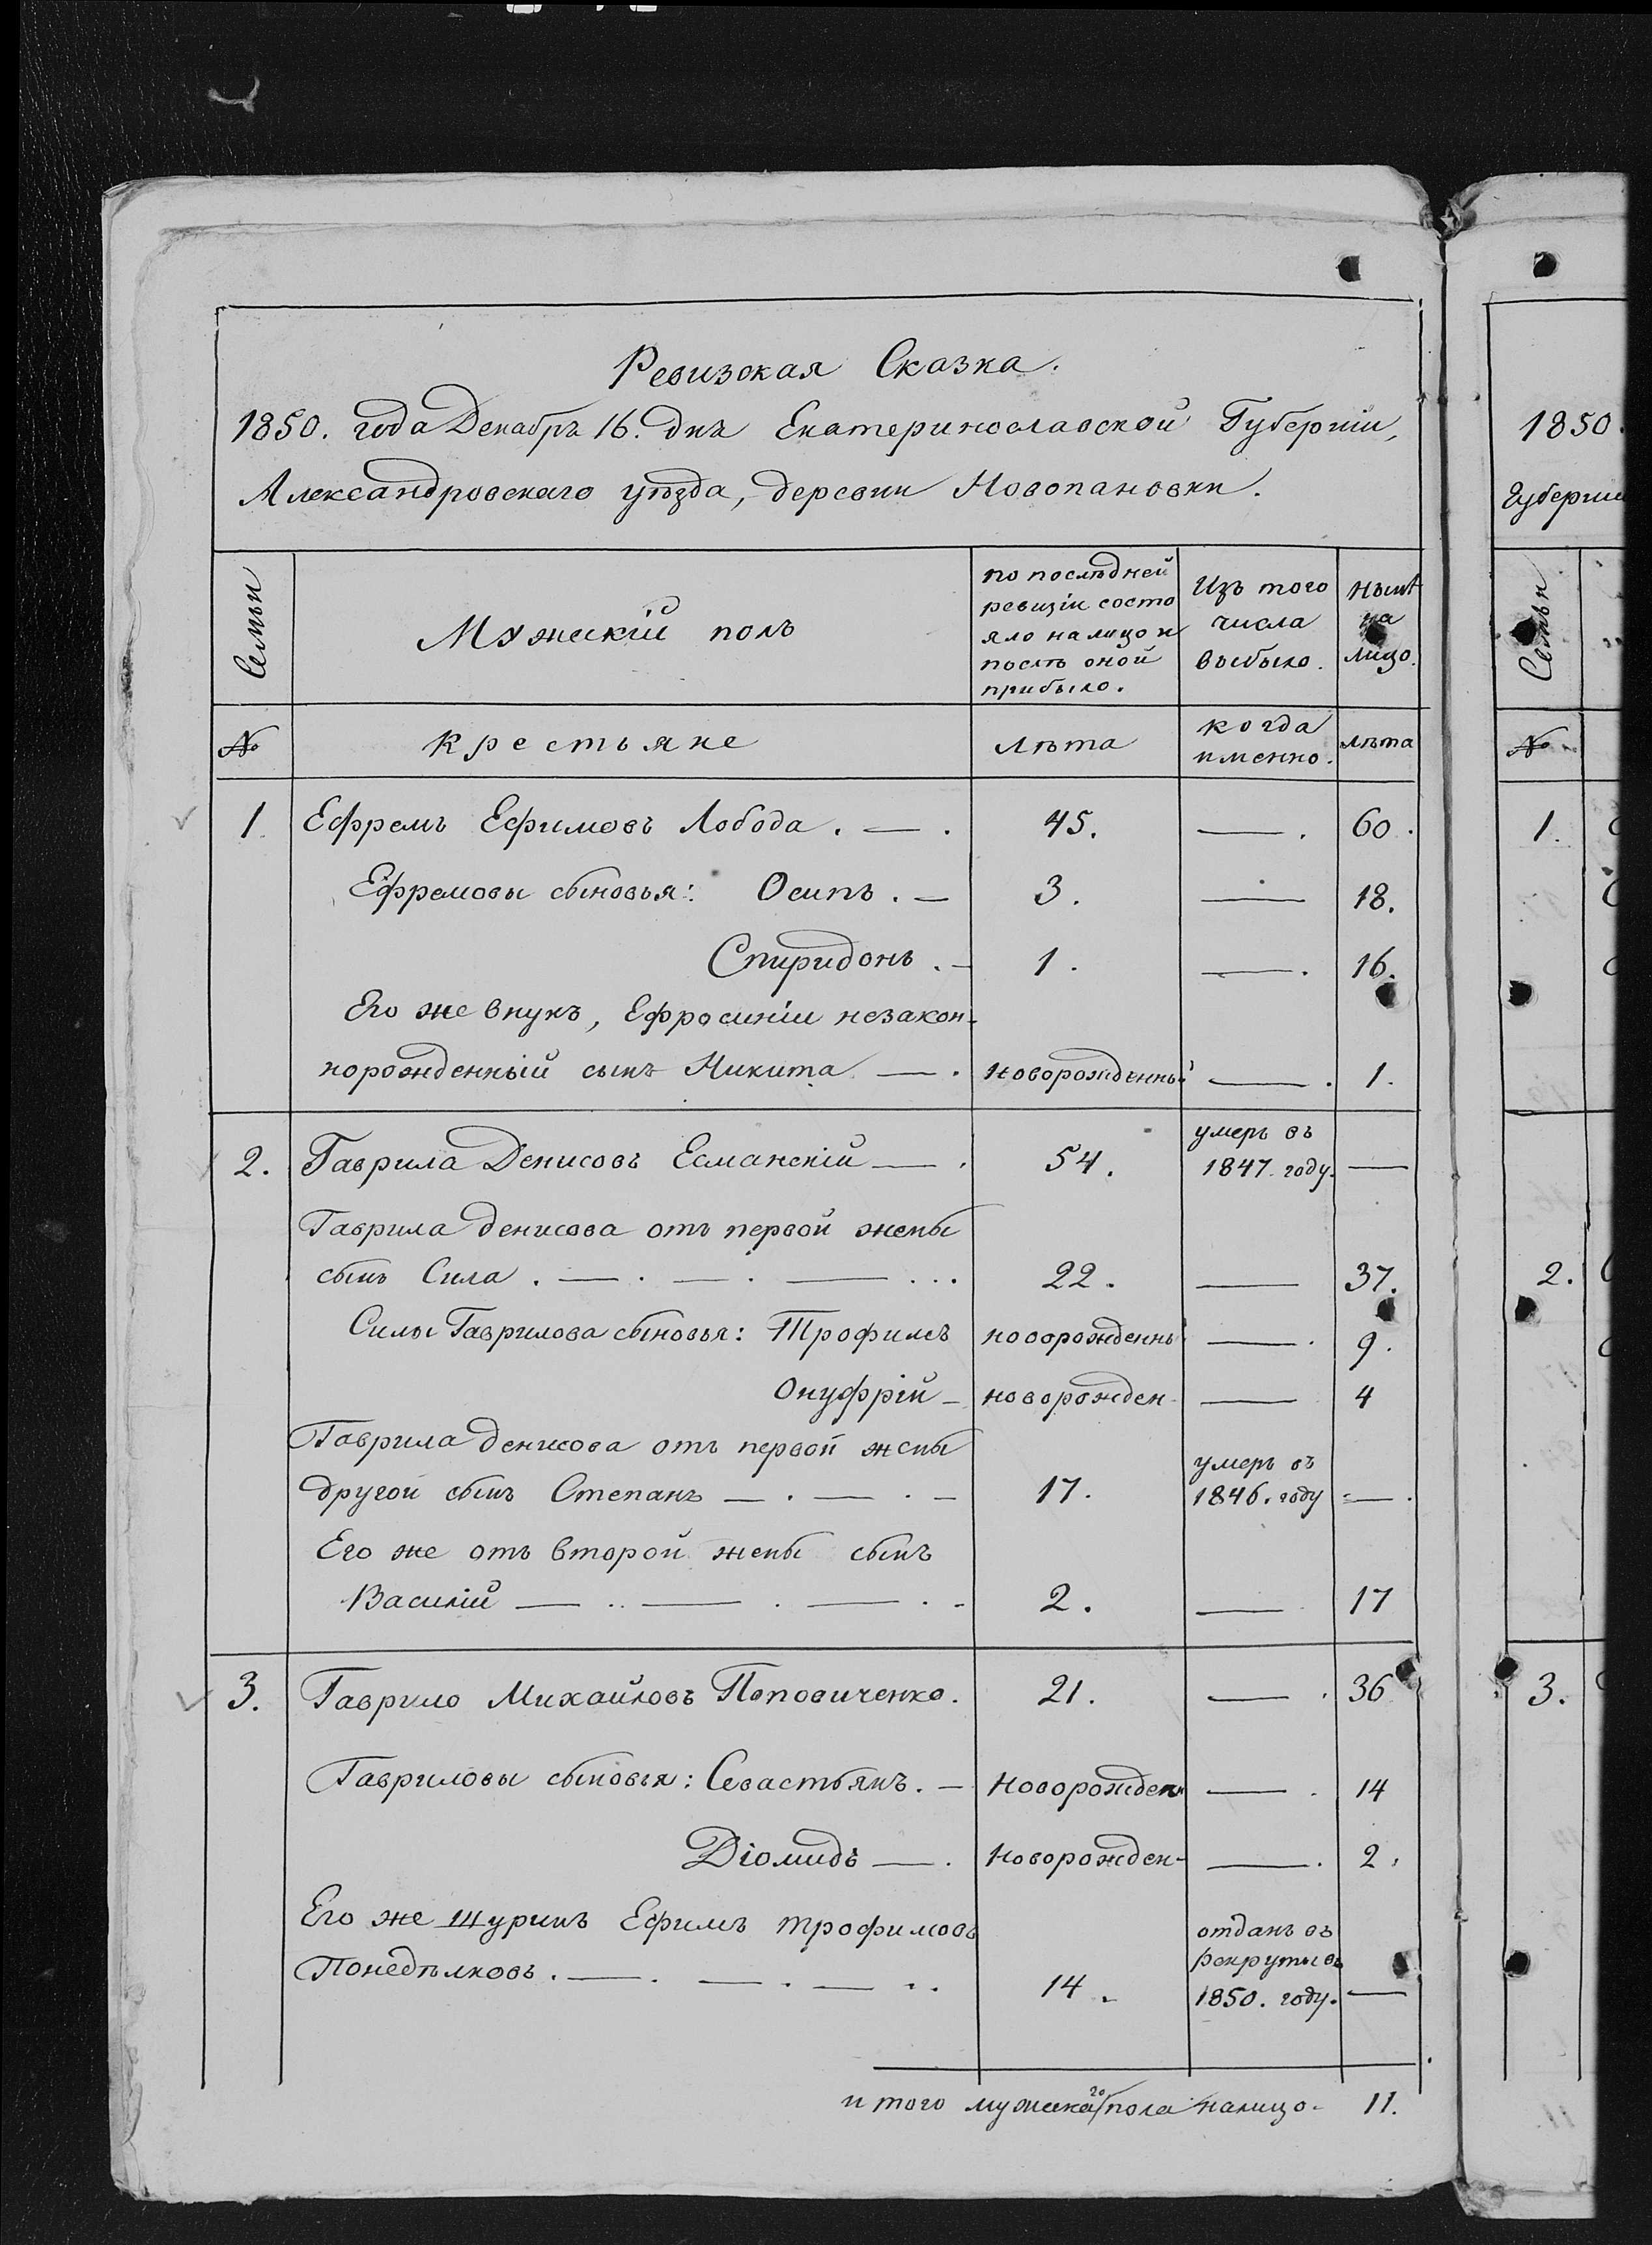 Ревизская Сказка.
1850. года Декабръ 16. днѣ Екатеринославской Губерніи,
Александровскаго уѣзда, деревни Новопановки.
Семьи
Мужескій полъ
по послѣдней
ревизіи состо
яло на лицо и
послѣ оной
прибыло.
Изъ того
числа
выбыло.
Нынѣ
на
лицо.
№
Крестьяне
Лѣта
когда
именно.
лѣта
1. Ефремъ Ефимовъ Лобода. — . 45. — . 60.
Ефремовы сыновья: Осипъ. — 3. — 18.
Спиридонъ. — 1. — . 16.
Его же внукъ, Ефросиніи незакон-
норожденный сынъ Никита — . новорожденный — . 1.
умеръ въ
2. Гаврила Денисовъ Есманскій — . 54. 1847. году. —
Гаврила Денисова отъ первой жены
сынъ Сила . — . — . — ... 22. — 37.
Силы Гаврилова сыновья: Трофимъ новорожденны — . 9.
Онуфрій — новорожден — 4
Гаврила Денисова отъ первой жены
умеръ въ
другой сынъ Степанъ — . — . — 17. 1846. году — .
Его же отъ второй жены сынъ
Василій — .. — . — . - 2. — 17
3. Гаврило Михайловъ Поповиченко. 21. — . 36
Гавриловы сыновья: Севастьянъ. — Новорожден — . 14
Діомидъ — . Новорожден- — . 2.
Его же шуринъ Ефимъ Трофимовъ
Понедѣлковъ. — . — . — .. 14.
отданъ въ
рекруты въ
1850. году. —
итого мужеска го пола налицо. 11.
1850.
Губерніи
Семьи
№
1.
2.
3.